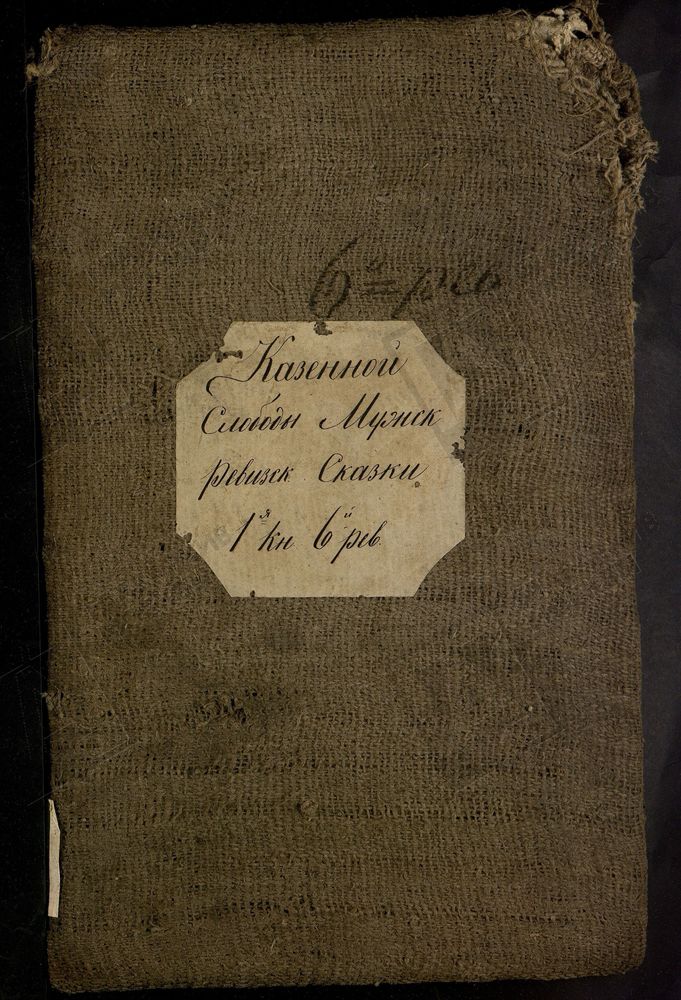 6й = рев
Казенной
Слободы Мужск
Ревизск Сказки
1я кн 6й рев.